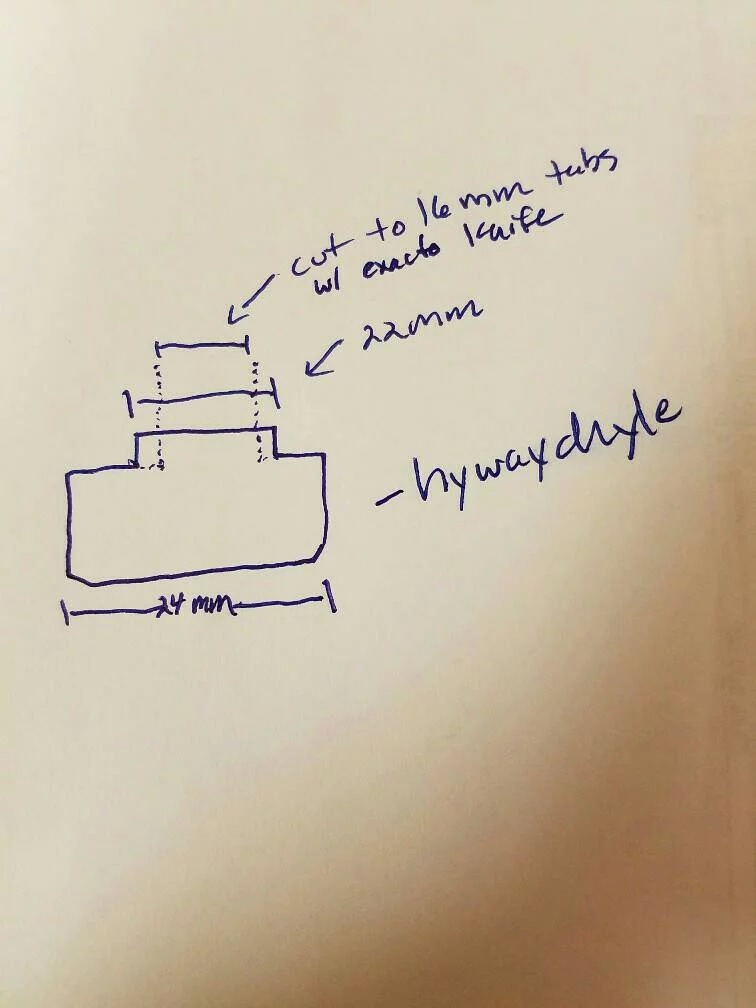 cut to 16mm tabs
w/ exacto knife
22mm
-hywaydhyle
24 mm